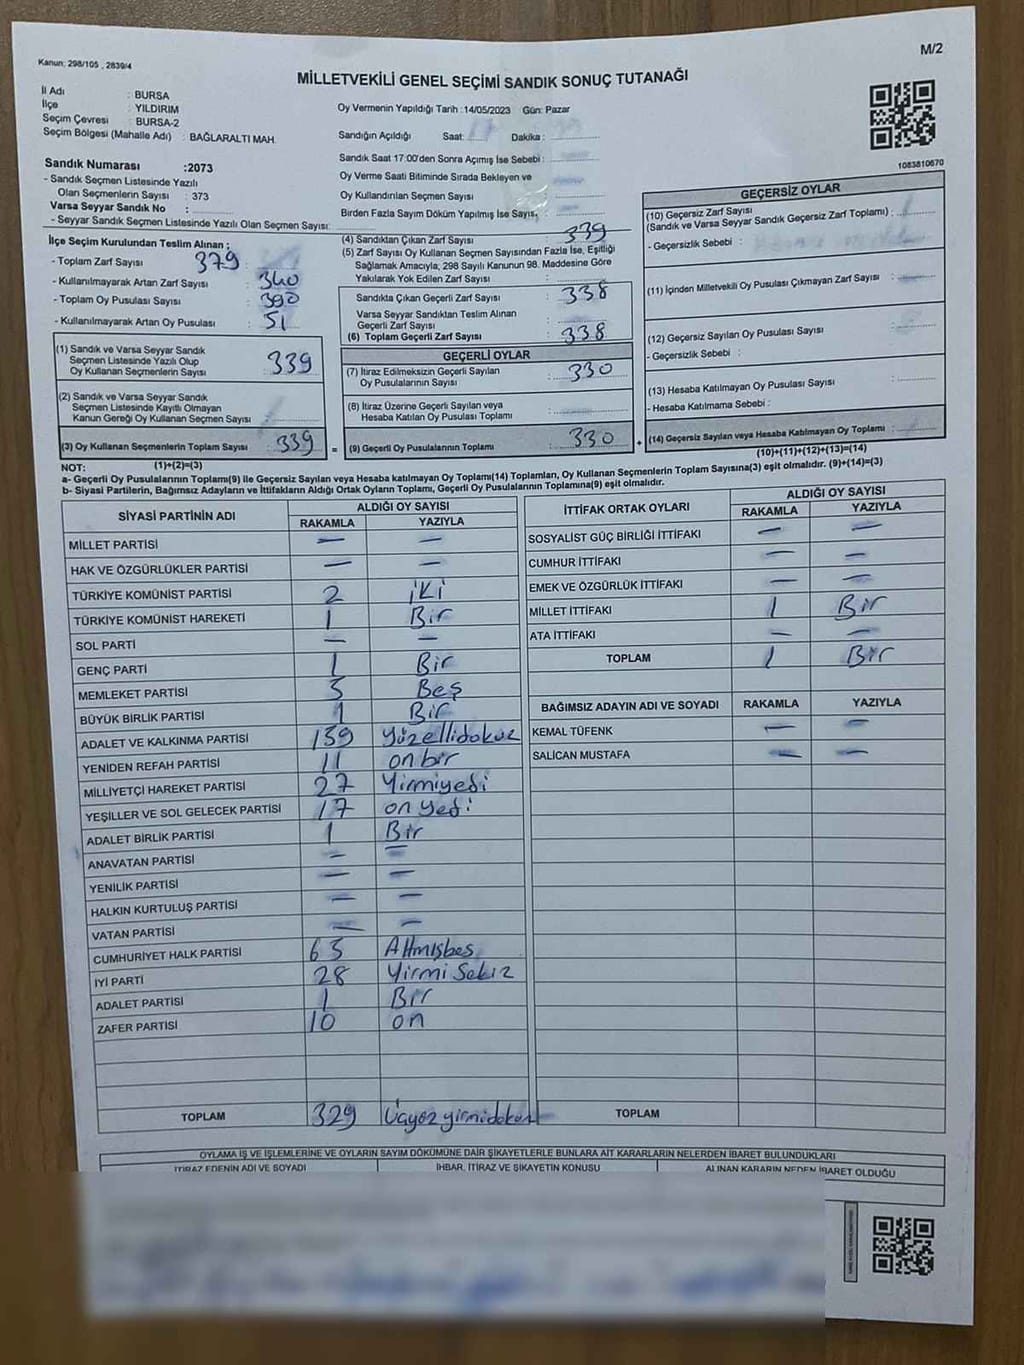 Kanun; 298/105 , 2839/4
M/2
MİLLETVEKİLİ GENEL SEÇİMİ SANDIK SONUÇ TUTANAĞI
İl Adı : BURSA
İlçe : YILDIRIM
Seçim Çevresi : BURSA-2
Seçim Bölgesi (Mahalle Adı) : BAĞLARALTI MAH.
Oy Vermenin Yapıldığı Tarih :14/05/2023 Gün: Pazar
Sandığın Açıldığı Saat: Dakika :
Sandık Saat 17:00'den Sonra Açımış İse Sebebi :
Oy Verme Saati Bitiminde Sırada Bekleyen ve
Oy Kullandırılan Seçmen Sayısı
Birden Fazla Sayım Döküm Yapılmış İse Sayısı
1083810670
Sandık Numarası :2073
- Sandık Seçmen Listesinde Yazılı
Olan Seçmenlerin Sayısı : 373
Varsa Seyyar Sandık No :
- Seyyar Sandık Seçmen Listesinde Yazılı Olan Seçmen Sayısı:
İlçe Seçim Kurulundan Teslim Alınan ;
- Toplam Zarf Sayısı 379
- Kullanılmayarak Artan Zarf Sayısı : 340
- Toplam Oy Pusulası Sayısı : 390
- Kullanılmayarak Artan Oy Pusulası : 51
(1) Sandık ve Varsa Seyyar Sandık
Seçmen Listesinde Yazılı Olup
Oy Kullanan Seçmenlerin Sayısı : 339
(2) Sandık ve Varsa Seyyar Sandık
Seçmen Listesinde Kayıtlı Olmayan
Kanun Gereği Oy Kullanan Seçmen Sayısı :
(3) Oy Kullanan Seçmenlerin Toplam Sayısı : 339 =
(4) Sandıktan Çıkan Zarf Sayısı : 339
(5) Zarf Sayısı Oy Kullanan Seçmen Sayısından Fazla İse, Eşitliği
Sağlamak Amacıyla, 298 Sayılı Kanunun 98. Maddesine Göre
Yakılarak Yok Edilen Zarf Sayısı :
Sandıkta Çıkan Geçerli Zarf Sayısı : 338
Varsa Seyyar Sandıktan Teslim Alınan
Geçerli Zarf Sayısı :
(6) Toplam Geçerli Zarf Sayısı : 338
GEÇERLİ OYLAR
(7) İtiraz Edilmeksizin Geçerli Sayılan
Oy Pusulalarının Sayısı : 330
(8) İtiraz Üzerine Geçerli Sayılan veya
Hesaba Katılan Oy Pusulası Toplamı :
(9) Geçerli Oy Pusulalarının Toplamı : 330 +
GEÇERSİZ OYLAR
(10) Geçersiz Zarf Sayısı
(Sandık ve Varsa Seyyar Sandık Geçersiz Zarf Toplamı) :
- Geçersizlik Sebebi :
(11) İçinden Milletvekili Oy Pusulası Çıkmayan Zarf Sayısı :
(12) Geçersiz Sayılan Oy Pusulası Sayısı :
- Geçersizlik Sebebi :
(13) Hesaba Katılmayan Oy Pusulası Sayısı :
- Hesaba Katılmama Sebebi :
(14) Geçersiz Sayılan veya Hesaba Katılmayan Oy Pusulası Toplamı :
(10)+(11)+(12)+(13)=(14)
NOT: (1)+(2)=(3)
a- Geçerli Oy Pusulalarının Toplamı(9) ile Geçersiz Sayılan veya Hesaba katılmayan Oy Toplamı(14) Toplamları, Oy Kullanan Seçmenlerin Toplam Sayısına(3) eşit olmalıdır. (9)+(14)=(3)
b- Siyasi Partilerin, Bağımsız Adayların ve İttifakların Aldığı Ortak Oyların Toplamı, Geçerli Oy Pusulalarının Toplamına(9) eşit olmalıdır.
SİYASİ PARTİNİN ADI ALDIĞI OY SAYISI
RAKAMLA YAZIYLA
MİLLET PARTİSİ — —
HAK VE ÖZGÜRLÜKLER PARTİSİ — —
TÜRKİYE KOMÜNİST PARTİSİ 2 iki
TÜRKİYE KOMÜNİST HAREKETİ 1 Bir
SOL PARTİ — —
GENÇ PARTİ 1 Bir
MEMLEKET PARTİSİ 5 Beş
BÜYÜK BİRLİK PARTİSİ 1 Bir
ADALET VE KALKINMA PARTİSİ 159 Yüzellidokuz
YENİDEN REFAH PARTİSİ 11 on bir
MİLLİYETÇİ HAREKET PARTİSİ 27 Yirmiyedi
YEŞİLLER VE SOL GELECEK PARTİSİ 17 on yedi
ADALET BİRLİK PARTİSİ 1 Bir
ANAVATAN PARTİSİ — —
YENİLİK PARTİSİ — —
HALKIN KURTULUŞ PARTİSİ — —
VATAN PARTİSİ — —
CUMHURİYET HALK PARTİSİ 65 Altmışbeş
İYİ PARTİ 28 Yirmi Sekiz
ADALET PARTİSİ 1 Bir
ZAFER PARTİSİ 10 on
TOPLAM 329 Üçyüz yirmidokuz
İTTİFAK ORTAK OYLARI ALDIĞI OY SAYISI
RAKAMLA YAZIYLA
SOSYALİST GÜÇ BİRLİĞİ İTTİFAKI — —
CUMHUR İTTİFAKI — —
EMEK VE ÖZGÜRLÜK İTTİFAKI — —
MİLLET İTTİFAKI 1 Bir
ATA İTTİFAKI — —
TOPLAM 1 Bir
BAĞIMSIZ ADAYIN ADI VE SOYADI RAKAMLA YAZIYLA
KEMAL TÜFENK — —
SALİCAN MUSTAFA — —
TOPLAM
OYLAMA İŞ VE İŞLEMLERİNE VE OYLARIN SAYIM DÖKÜMÜNE DAİR ŞİKAYETLERLE BUNLARA AİT KARARLARIN NELERDEN İBARET BULUNDUKLARI
İTİRAZ EDENİN ADI VE SOYADI İHBAR, İTİRAZ VE ŞİKAYETİN KONUSU ALINAN KARARIN NEDEN İBARET OLDUĞU